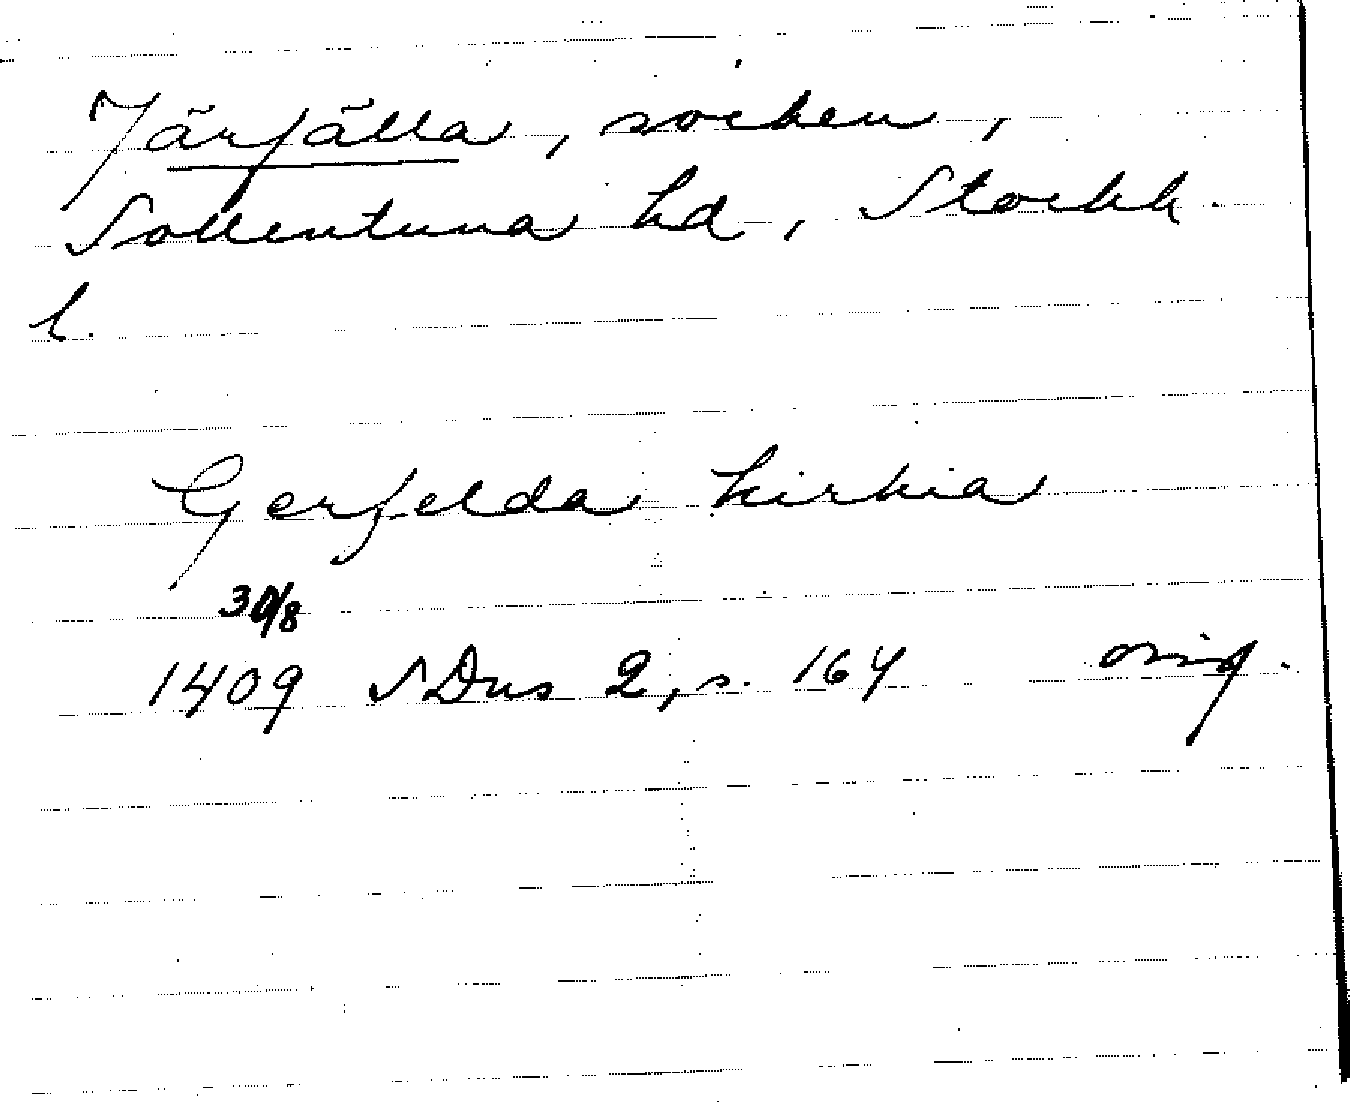 Järfälla, socken,
Sollentuna hd, Stockh.
l.
Gerfelda kirkia
30/8
1409 SDns 2, s. 164 orig.